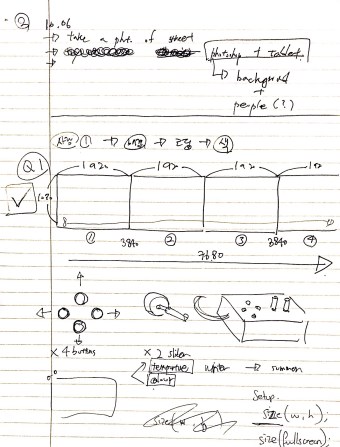 ②
10.06
→ take a pht. of street
photoshop + tablet
→ background
+
people (?)
① → → → 색
Q1
1920 1920 1920
1080
① 3840 ② ③ 3840 ④
7680
× 4 buttons
× 2 sliders
temperature winter → summer
colour
Setup.
size (w, h);
size (fullscreen);